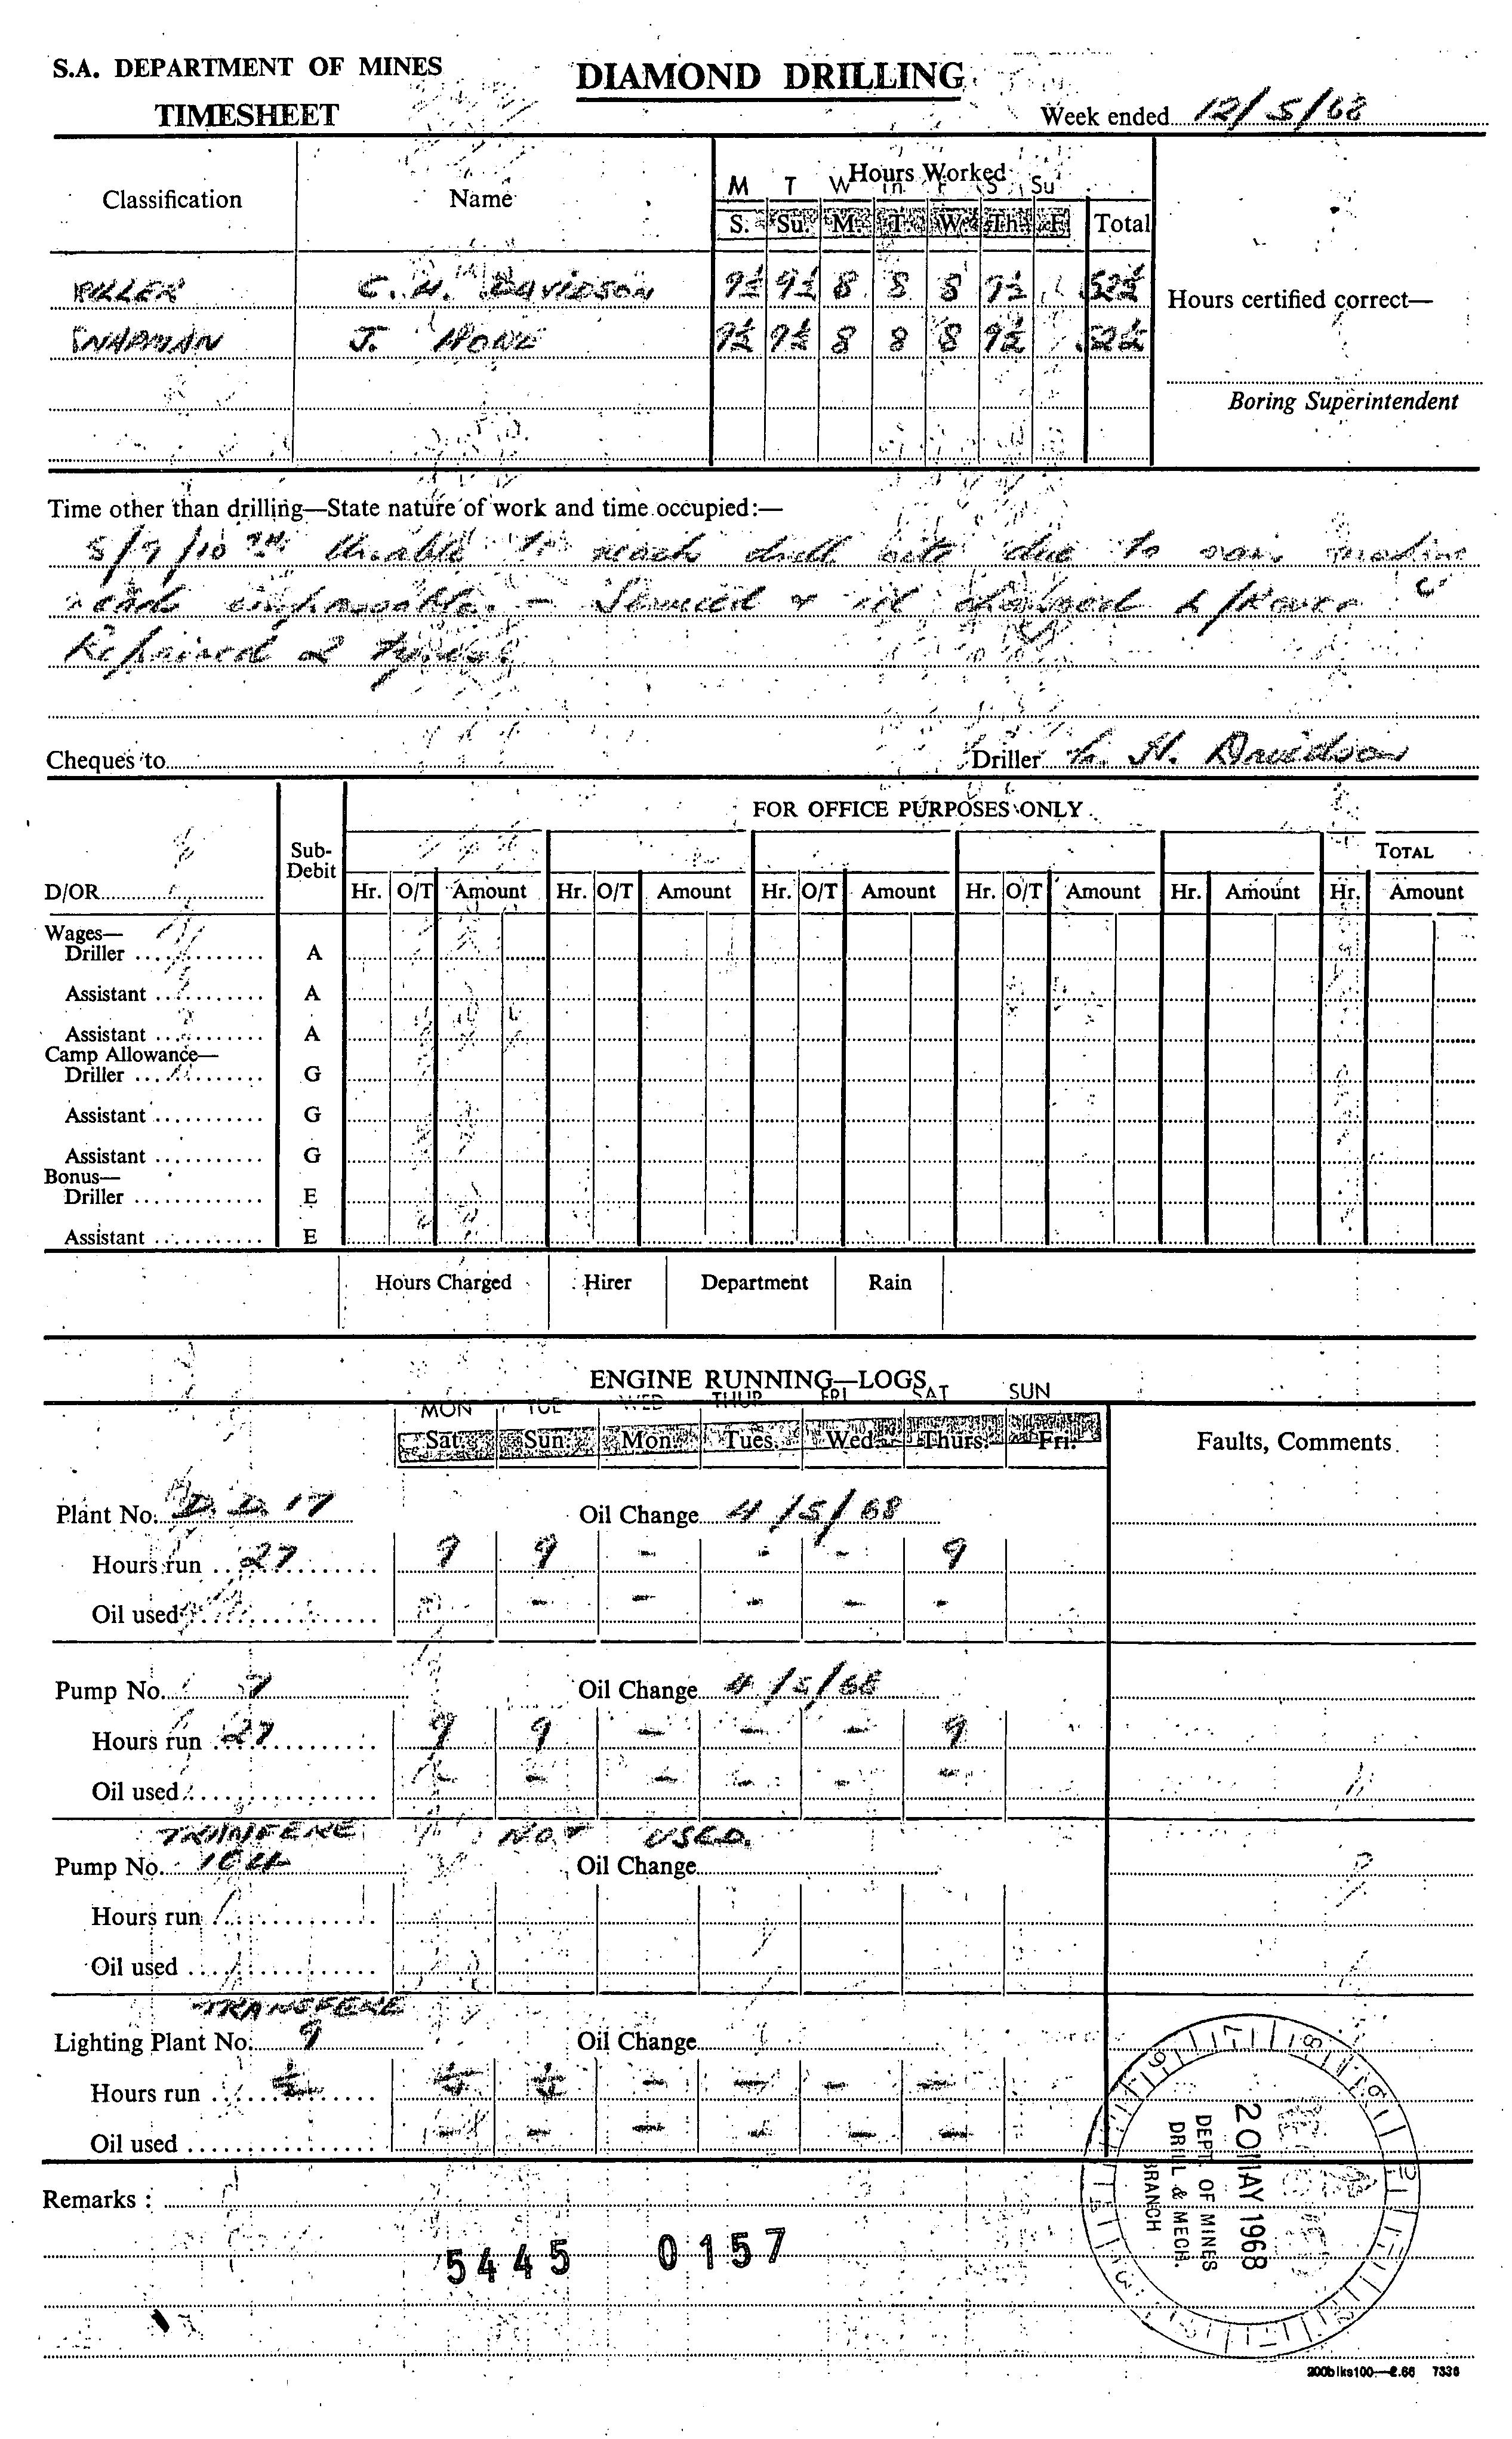 S.A. DEPARTMENT OF MINES
DIAMOND DRILLING
TIMESHEET
Week ended 12/5/68
Classification Name Hours Worked
M T W Th F S Su
S. Su. M. T. W. Th. F. Total
C. H. DAVIDSON 9½ 9½ 8 8 8 9½ 52½
Hours certified correct—
J. 9½ 9½ 8 8 8 9½ 52½
Boring Superintendent
Time other than drilling—State nature of work and time occupied:—
/9/10TH Unable to reach drill site due to rain making
impassable. – Serviced & oil changed L/Rover
Repaired 2 tyres.
Cheques to
Driller C. H. Davidson
FOR OFFICE PURPOSES ONLY
Sub-Debit
TOTAL
D/OR
Hr. O/T Amount Hr. O/T Amount Hr. O/T Amount Hr. O/T Amount Hr. Amount Hr. Amount
Wages—
Driller A
Assistant A
Assistant A
Camp Allowance—
Driller G
Assistant G
Assistant G
Bonus—
Driller E
Assistant E
Hours Charged Hirer Department Rain
ENGINE RUNNING—LOGS
MON TUE WED THUR FRI SAT SUN
Sat. Sun. Mon. Tues. Wed. Thurs. Fri. Faults, Comments
Plant No. D.D. 17 Oil Change 4/5/68
Hours run 27 9 9 - - - 9
Oil used - - - - - -
Pump No. 7 Oil Change 4/5/68
Hours run 27 9 9 - - - 9
Oil used - - - - - -
TRANFERE NOT USED.
Pump No. 104 Oil Change
Hours run
Oil used
TRANSFERE
Lighting Plant No. 9 Oil Change
Hours run - - - -
Oil used - - - - - -
RECEIVED
20 MAY 1968
DEPT. OF MINES
DRILL & MECH.
BRANCH
Remarks :
5445 0157
200blks100—2.66 7336